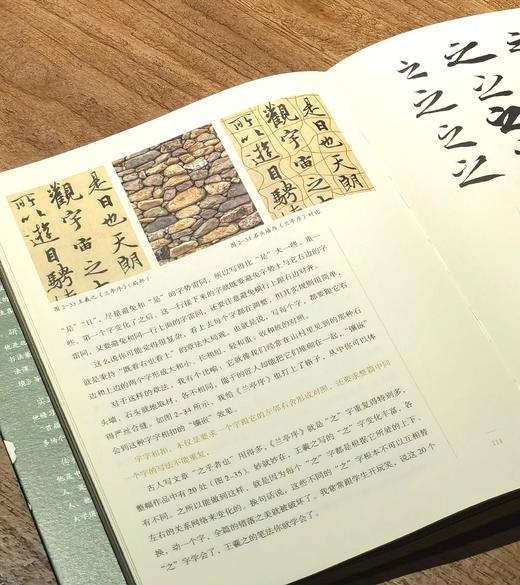 是日也天朗
觀宇宙之
所以遊目騁
是日也天朗
觀宇宙之
所以遊目騁
图 2-33 王羲之《兰亭序》（局部）
图 2-34 石头墙与《兰亭序》对比
“是”“日”，尽量避免和“是”的字势雷同，所以写得比“是”大一些、重一
些。第一个字变化了之后，这一行接下来的字就既要避免字势上与它右边的字
雷同，又要避免和同一行上面的字雷同，还要注意避免横行上跟右边对齐。
这么说你可能觉得很复杂，看上去每个字都在调整，但其实规则很简单，
就是秉持“既看右也看上”的章法大局观。也就是说，写每个字，都要跟它右
边和上边的两个字形成大和小、长和短、轻和重、收和放的对照。
对于这样的章法，我有个比喻，它就像我们经常在山村里见到的那种石
头墙，石头就地取材，各不相同，能干的匠人却能把它们堆砌在一起，“镶嵌”
得严丝合缝。如图 2-34 所示，我给《兰亭序》也打上了格子，从中你可以体
会到这种字字相扣的“镶嵌”效果。
字字相扣，不仅是要求一个字跟它的左邻右舍形成对照，还要求整篇中同
一个字的写法不能重复。
古人写文章“之乎者也”用得多，《兰亭序》就是“之”字重复得特别多，
整幅作品中有 20 处（图 2-35）。妙就妙在，王羲之写的“之”字变化丰富，各
有不同。之所以能做到这样，就是因为每个“之”字都是根据它所处的上下、
左右的关系网络来变化的。换句话说，这些不同的“之”字根本不可以互相替
换，动一个字，全篇的错落之美就被破坏了。我常常跟学生开玩笑，说这 20 个
“之”字学会了，王羲之的笔法你就学会了。
之 之
之 之
之
之